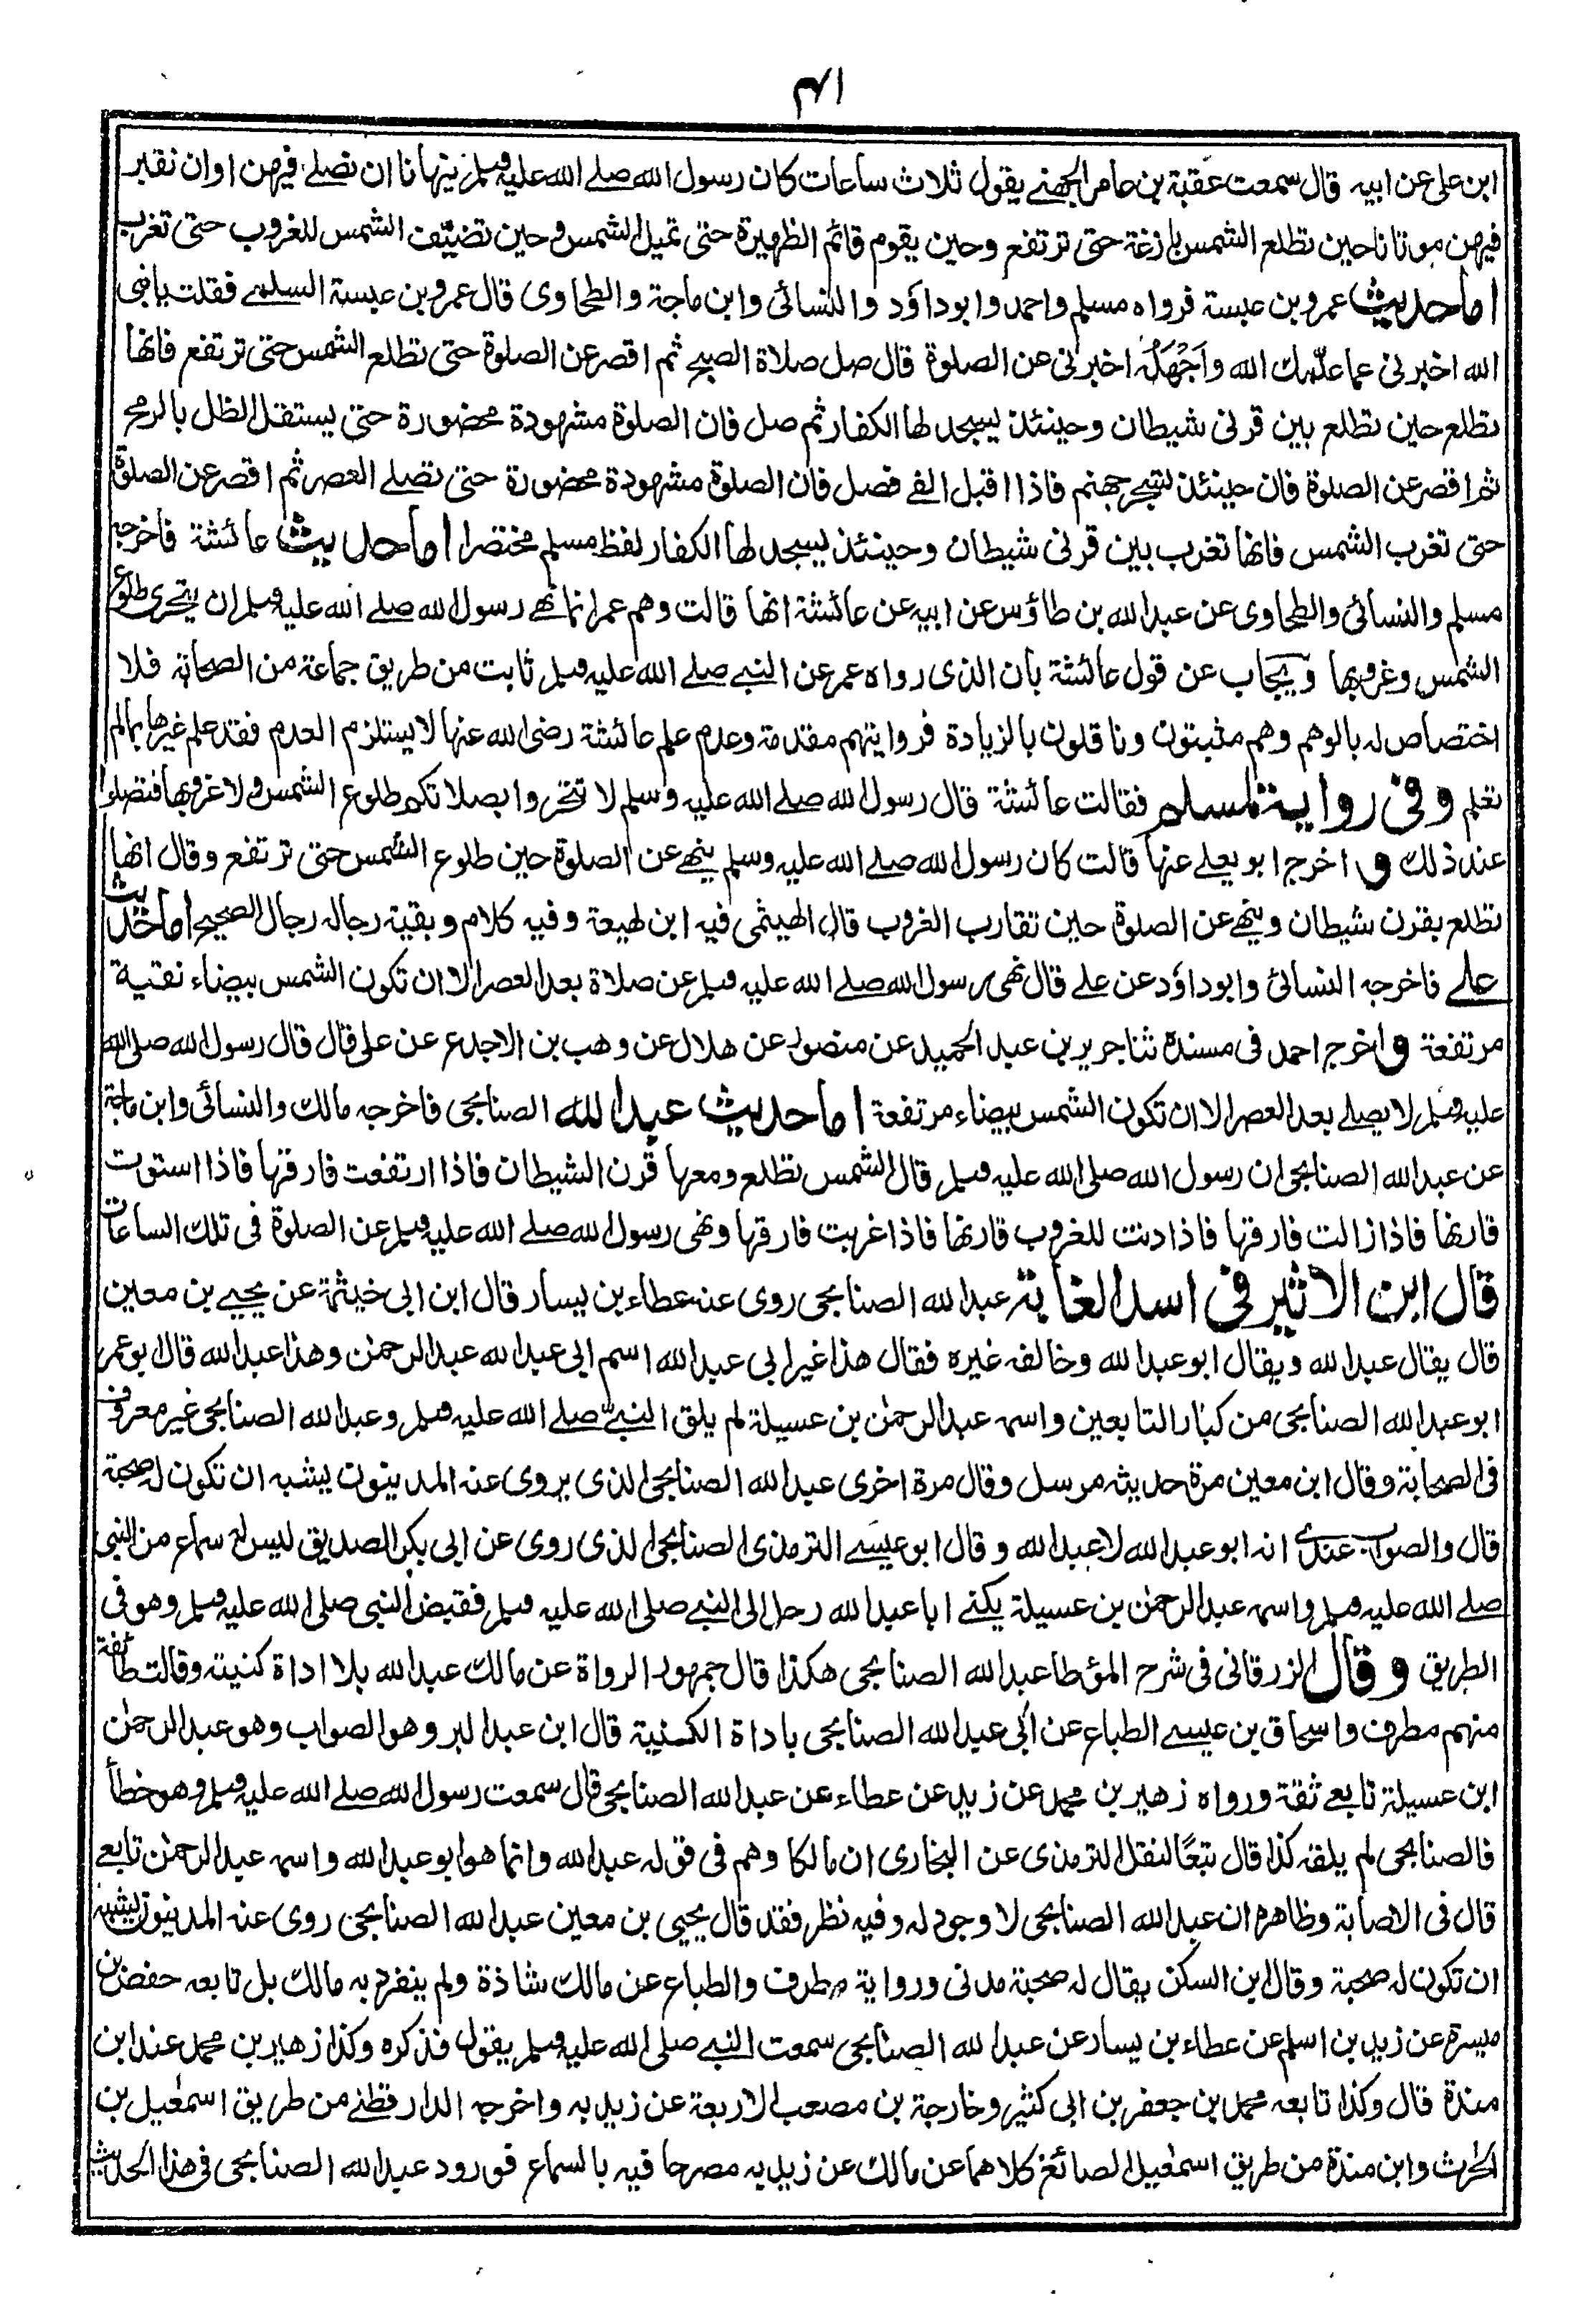 ۴۱
ابن علی عن ابیه قال سمعت عقبة بن عامر الجهنے یقول ثلاث ساعات کان رسول الله صلے الله علیه وسلم ینهانا ان نصلے فیهن او ان نقبر
فیهن موتانا حین تطلع الشمس بازغة حتی ترتفع وحین یقوم قائم الظهیرة حتی تمیل الشمس وحین تضیّف الشمس للغروب حتی تغرب
اما حدیث عمرو بن عبسة فرواه مسلم واحمد وابوداؤد والنسائی وابن ماجة والطحاوی قال عمرو بن عبسة السلمے فقلت یا نبی
الله اخبرنی عما علّمک الله واَجْهَلُه اخبرنی عن الصلوة قال صل صلاة الصبح ثم اقصر عن الصلوة حتی تطلع الشمس حتی ترتفع فانها
تطلع حین تطلع بین قرنی شیطان وحینئذ یسجد لها الکفار ثم صل فان الصلوة مشهودة محضورة حتی یستقل الظل بالرمح
ثم اقصر عن الصلوة فان حینئذ تسجر جهنم فاذا اقبل الفے فصل فان الصلوة مشهودة محضورة حتی تصلے العصر ثم اقصر عن الصلوة
حتی تغرب الشمس فانها تغرب بین قرنی شیطان وحینئذ یسجد لها الکفار لفظ مسلم مختصرا اما حدیث عائشة فاخرجه
مسلم والنسائی والطحاوی عن عبد الله بن طاؤس عن ابیه عن عائشة انها قالت وهم عمر انما نهے رسول الله صلے الله علیه وسلم ان یتحری طلوع
الشمس وغروبها ویجاب عن قول عائشة بان الذی رواه عمر عن النبے صلے الله علیه وسلم ثابت من طریق جماعة من الصحابة فلا
اختصاص له بالوهم وهم مثبتون وناقلون بالزیادة فروایتهم مقدمة وعدم علم عائشة رضی الله عنها لا یستلزم العدم فقد علم غیرها بمالم
تعلم وفی روایة لمسلم فقالت عائشة قال رسول الله صلے الله علیه وسلم لا تتحروا بصلاتکم طلوع الشمس ولا غروبها فتصلوا
عند ذلک و اخرج ابو یعلے عنها قالت کان رسول الله صلے الله علیه وسلم ینهے عن الصلوة حین طلوع الشمس حتی ترتفع وقال انها
تطلع بقرن شیطان وینهے عن الصلوة حین تقارب الغروب قال الهیثمی فیه ابن لهیعة وفیه کلام وبقیة رجاله رجال الصحیح اما حدیث
علے فاخرجه النسائی وابوداؤد عن علے قال نهی رسول الله صلے الله علیه وسلم عن صلاة بعد العصر الا ان تکون الشمس بیضاء نقیة
مرتفعة و اخرج احمد فی مسنده ثنا جریر بن عبد الحمید عن منصور عن هلال عن وهب بن الاجدع عن علی قال قال رسول الله صلی الله
علیه وسلم لا یصلے بعد العصر الا ان تکون الشمس بیضاء مرتفعة اما حدیث عبد الله الصنابحی فاخرجه مالک والنسائی وابن ماجة
عن عبد الله الصنابحی ان رسول الله صلی الله علیه وسلم قال الشمس تطلع ومعها قرن الشیطان فاذا ارتفعت فارقها فاذا استوت
قارنها فاذا زالت فارقها فاذا دنت للغروب قارنها فاذا غربت فارقها ونهی رسول الله صلے الله علیه وسلم عن الصلوة فی تلک الساعات
قال ابن الاثیر فی اسد الغابة عبد الله الصنابحی روی عنه عطاء بن یسار قال ابن ابی خیثمة عن یحیے بن معین
قال یقال عبد الله ویقال ابو عبد الله وخالفه غیره فقال هذا غیر ابی عبد الله اسم ابی عبد الله عبد الرحمٰن وهذا عبد الله قال ابو عمر
ابو عبد الله الصنابحی من کبار التابعین واسمه عبد الرحمٰن بن عسیلة لم یلق النبے صلے الله علیه وسلم وعبد الله الصنابحی غیر معروف
فی الصحابة وقال ابن معین مرة حدیثه مرسل وقال مرة اخری عبد الله الصنابحی الذی یروی عنه المدینون یشبه ان تکون له صحبة
قال والصواب عندی انه ابو عبد الله لا عبد الله وقال ابو عیسے الترمذی الصنابحی الذی روی عن ابی بکر الصدیق لیس له سماع من النبی
صلے الله علیه وسلم واسمه عبد الرحمٰن بن عسیلة یکنے ابا عبد الله رحل الی النبے صلی الله علیه وسلم فقبض النبی صلی الله علیه وسلم وهو فی
الطریق وقال الزرقانی فی شرح المؤطا عبد الله الصنابحی هکذا قال جمهور الرواة عن مالک عبد الله بلا اداة کنیته وقالت طائفة
منهم مطرف واسحاق بن عیسے الطباع عن ابی عبد الله الصنابحی باداة الکنیة قال ابن عبد البر وهو الصواب وهو عبد الرحمٰن
ابن عسیلة تابعے ثقة ورواه زهیر بن محمد عن زید عن عطاء عن عبد الله الصنابحی قال سمعت رسول الله صلے الله علیه وسلم وهو خطأ
فالصنابحی لم یلقه کذا قال تبعًا لنقل الترمذی عن البخاری ان مالکا وهم فی قوله عبد الله وانما هو ابو عبد الله واسمه عبد الرحمٰن تابعے
قال فی الاصابة وظاهره ان عبد الله الصنابحی لا وجود له وفیه نظر فقد قال یحیی بن معین عبد الله الصنابحی روی عنه المدینون یشبه
ان تکون له صحبة وقال ابن السکن یقال له صحبة مدنی وروایة مطرف والطباع عن مالک شاذة ولم ینفرد به مالک بل تابعه حفص بن
میسرة عن زید بن اسلم عن عطاء بن یسار عن عبد الله الصنابحی سمعت النبے صلی الله علیه وسلم یقول فذکره وکذا زهیر بن محمد عند ابن
مندة قال وکذا تابعه محمد بن جعفر بن ابی کثیر وخارجة بن مصعب الاربعة عن زید به واخرجه الدارقطنے من طریق اسمٰعیل بن
الحرث وابن مندة من طریق اسمٰعیل الصائغ کلاهما عن مالک عن زید به مصرحا فیه بالسماع فورود عبد الله الصنابحی فی هذا الحدیث